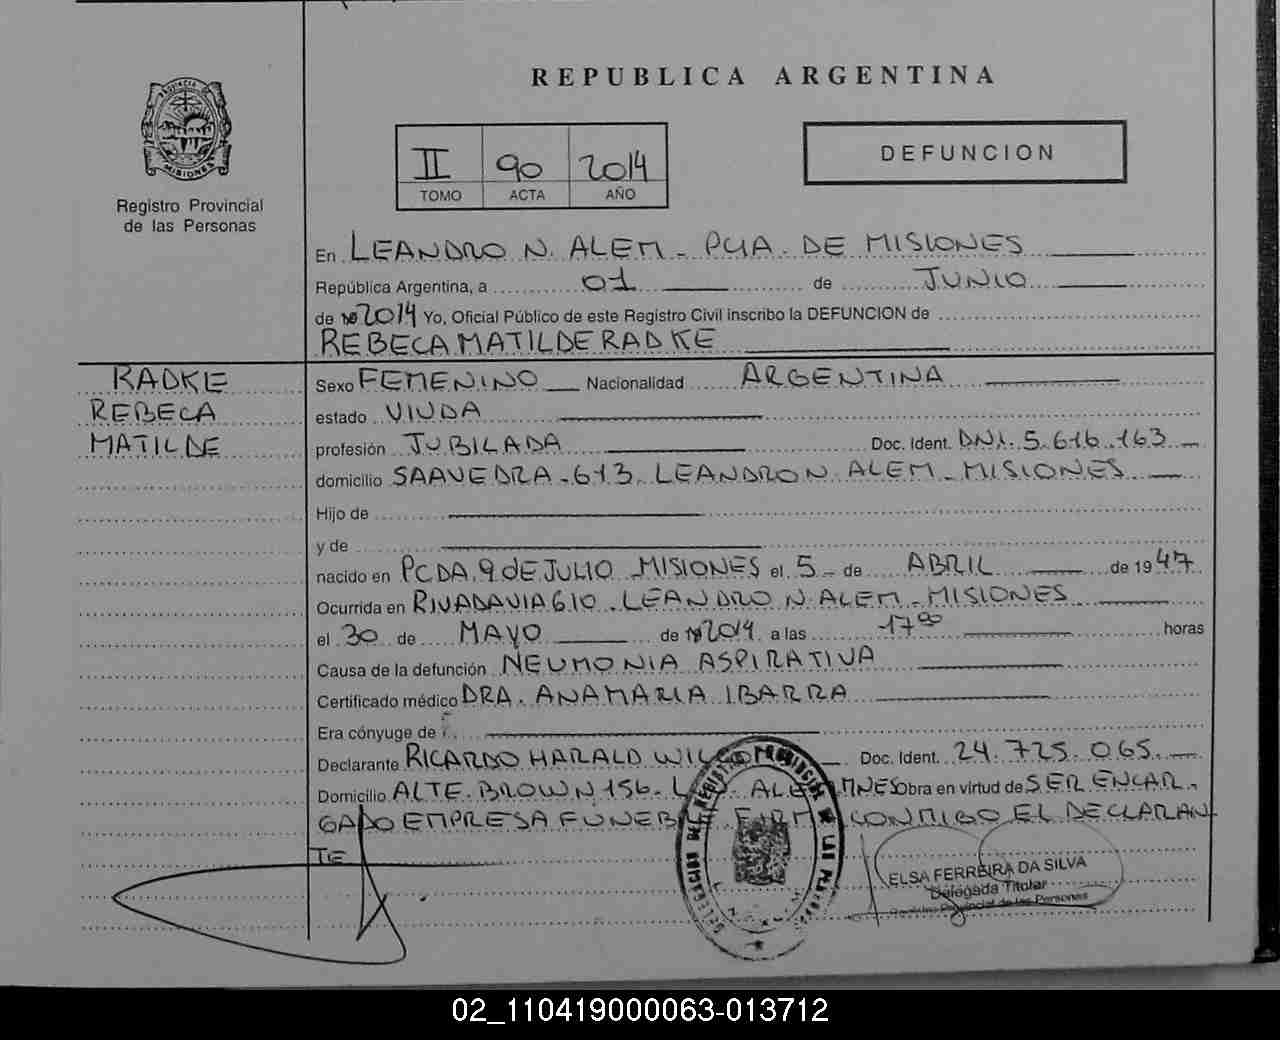 REPUBLICA ARGENTINA
PROVINCIA DE MISIONES
Registro Provincial
de las Personas
II 90 2014
TOMO ACTA AÑO
DEFUNCION
En LEANDRO N. ALEM - PCIA. DE MISIONES
República Argentina, a 01 de JUNIO
de 2014 Yo, Oficial Público de este Registro Civil inscribo la DEFUNCION de
REBECA MATILDE RADKE
RADKE
REBECA
MATILDE
Sexo FEMENINO Nacionalidad ARGENTINA
estado VIUDA
profesión JUBILADA Doc. Ident. DNI. 5.616.163
domicilio SAAVEDRA - 613. LEANDRO N. ALEM - MISIONES
Hijo de
y de
nacido en PCDA. 9 DE JULIO - MISIONES el 5 - de ABRIL de 1947
Ocurrida en RIVADAVIA 610. LEANDRO N. ALEM - MISIONES
el 30 de MAYO de 2014 a las 17 00 horas
Causa de la defunción NEUMONIA ASPIRATIVA
Certificado médico DRA. ANAMARIA IBARRA
Era cónyuge de
Declarante RICARDO HARALD Doc. Ident. 24.725.065.
Domicilio ALTE. BROWN 156. L. N. ALEM MNES Obra en virtud de SER ENCAR-
GADO EMPRESA FUNEB FIRMA CONMIGO EL DECLARAN
TE
DELEGACION DEL REGISTRO PROVINCIAL DE LAS PERSONAS
ELSA FERREIRA DA SILVA
Delegada Titular
Registro Provincial de las Personas
02_110419000063-013712